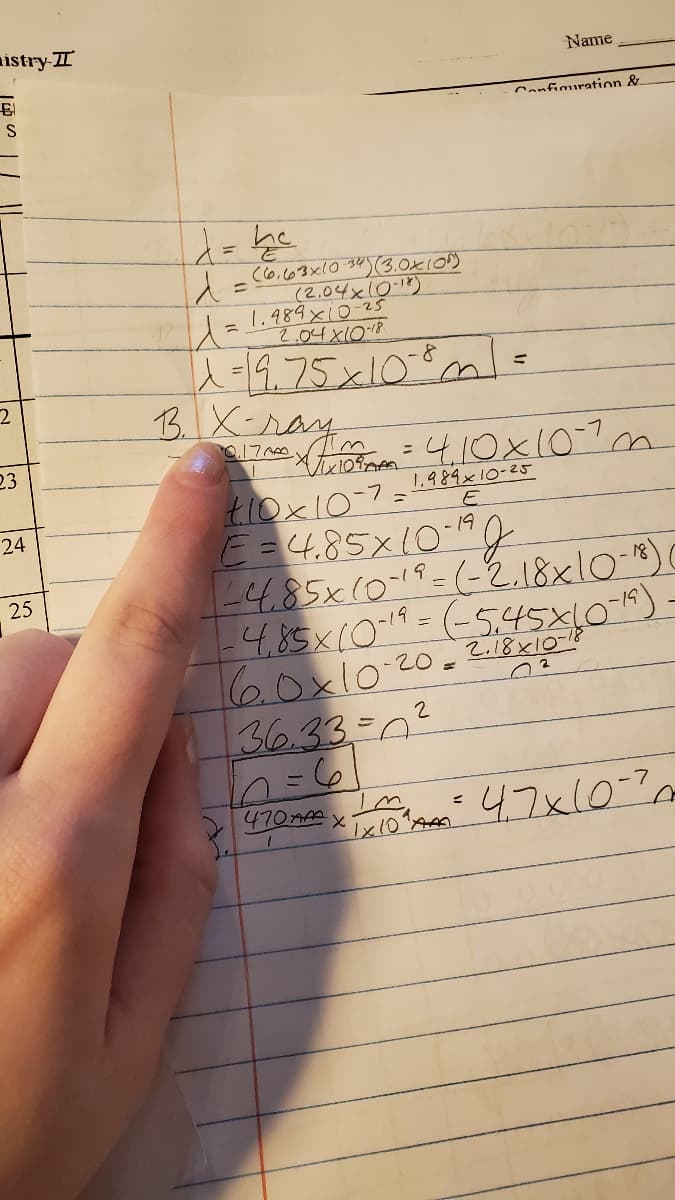 istry-II
Name
Configuration &
E
S
λ = hc/E
λ = (6.63x10-34)(3.0x10⁸)/(2.04x10-18)
λ = 1.989x10-25/2.04x10-18
λ = 9.75x10-8 m =
2
B. X-ray
0.17nm/1 x 1m/1x10⁹nm = 4.10x10-7 m
23
4.10x10-7 = 1.989x10-25/E
24
E = 4.85x10-19 J
-4.85x10-19 = (-2.18x10-18)(
25
-4.85x10-19 = (-5.45x10-19) -
6.0x10-20 = 2.18x10-18/n²
36.33 = n²
n = 6
470nm/1 x 1m/1x10⁹nm = 4.7x10-7